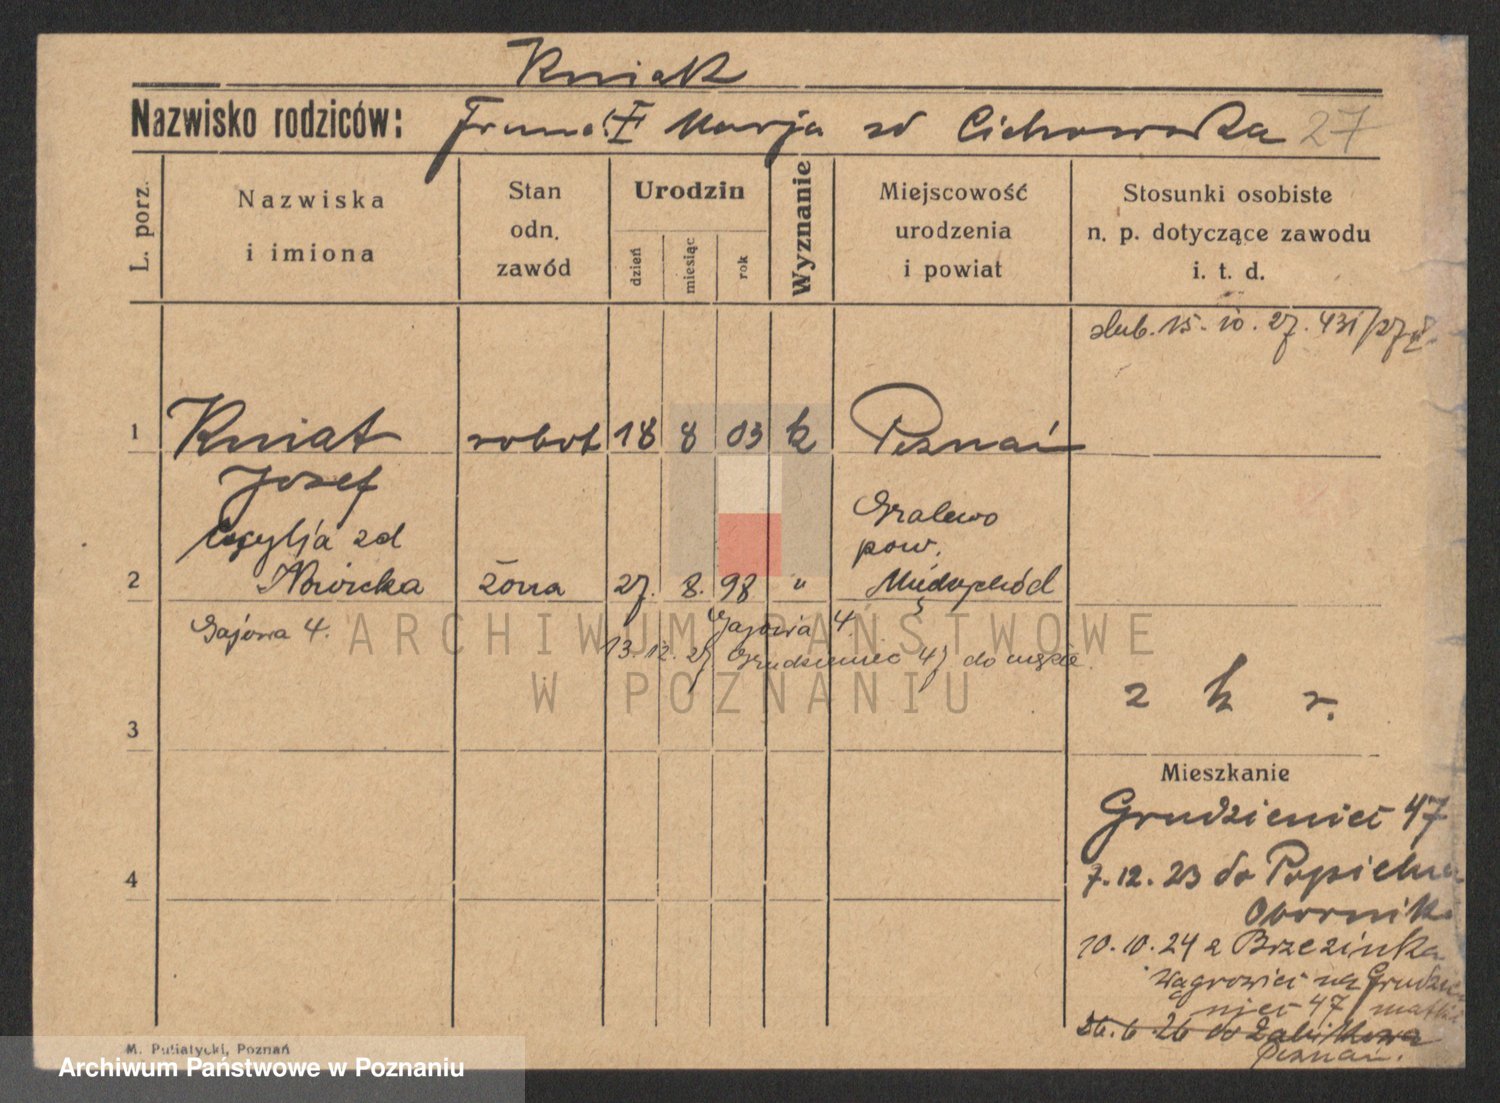 Kniat
Nazwisko rodziców: Franc. Marja zd Cichowska 27
L. porz.
Nazwiska
i imiona
Stan
odn.
zawód
Urodzin
dzień
miesiąc
rok
Wyznanie
Miejscowość
urodzenia
i powiat
Stosunki osobiste
n. p. dotyczące zawodu
i. t. d.
ślub. 15. 10. 27. 431/27
1 Kniat robot 18 8 03 k Poznań
Józef
Cecylja zd
Gralewo
pow.
2 Nowicka żona 27. 8. 98 " Międzychód
Gajowa 4. Gajowa 4.
13. 12. 27 Grudzieniec 47 do męża.
ARCHIWUM PAŃSTWOWE
W POZNANIU
z k r.
3
Mieszkanie
Grudzieniec 47
7. 12. 23 do
4
Oborniki
10. 10. 24 z Brzezinka
Wągrowiec na Grudzie
niec 47/ matki
26. 6. 26 do Żabikowa
Poznań.
M. Putiatycki, Poznań
Archiwum Państwowe w Poznaniu